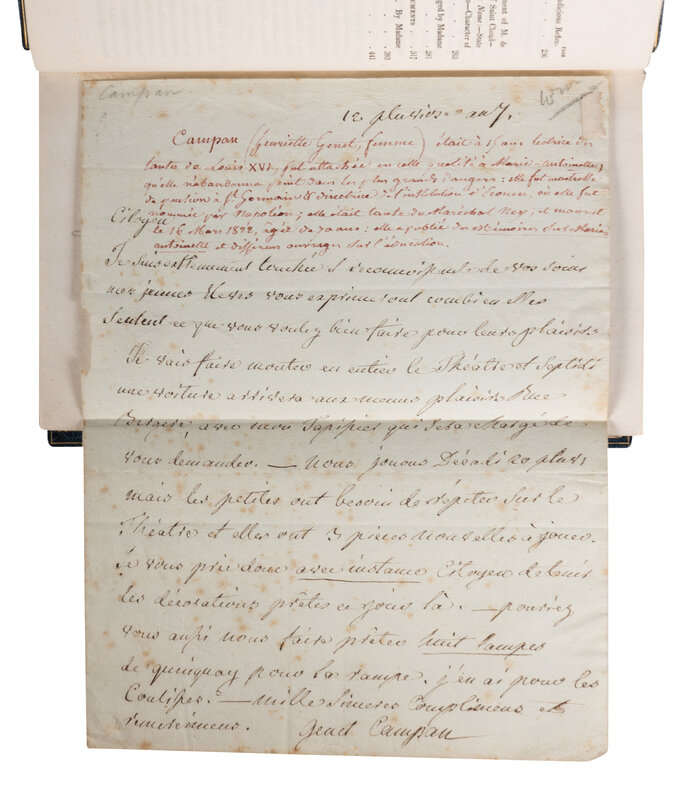 PAGE
dicious Refre-
236
ment of M. de
of Saint Cloud—
Name—State
o—Character of
263
ged by Madame
281
UMENTS
317
383
By Madame
441
Campan
12 pluviose an 7.
Campan (henriette Genet, femme) était à 15 ans lectrice des
tantes de Louis XVI, fut attachée en cette qualité à Marie-Antoinette,
qu'elle n'abandonna point dans les plus grands dangers; elle fut maitresse
de pension à St Germain & directrice de l'institution d'Ecouen, où elle fut
nommée par Napoléon; elle était tante du Maréchal Ney, et mourut
le 16 Mars 1822, âgée de 70 ans: elle a publié des Mémoires sur Marie-
antoinette et différens ouvrages sur l'éducation.
Citoyen
Je suis extremement touchée & reconnoissante de vos soins
mes jeunes Eleves vous exprimeront combien elles
Sentent ce que vous voulez bien faire pour leurs plaisirs.
Je vais faire monter en entier le Théâtre et Septidi
une voiture arrivera aux menus plaisirs Rue
Bergere, avec mon Tapissier qui sera chargé de
vous demander. — nous jouons Décadi 20 pluvi
mais les petites ont besoin de répéter sur le
Théatre et elles ont 3 pieces nouvelles à jouer.
Je vous prie donc avec instance Citoyen de tenir
les décorations prêtes ce jour là. — pourriez
vous aussi nous faire prêter huit lampes
de quinquay pour la rampe. j'en ai pour les
Coulisses. — mille Sinceres Complimens et
remercimens.
Genet Campan